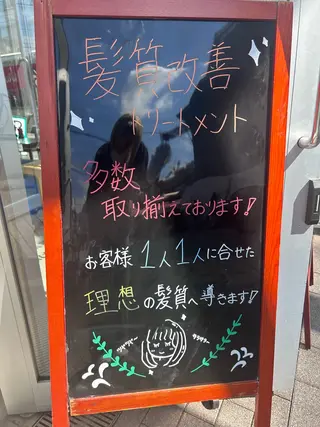 髪質改善
トリートメント
多数
取り揃えております!
お客様 1人1人に合せた
理想の髪質へ導きます!